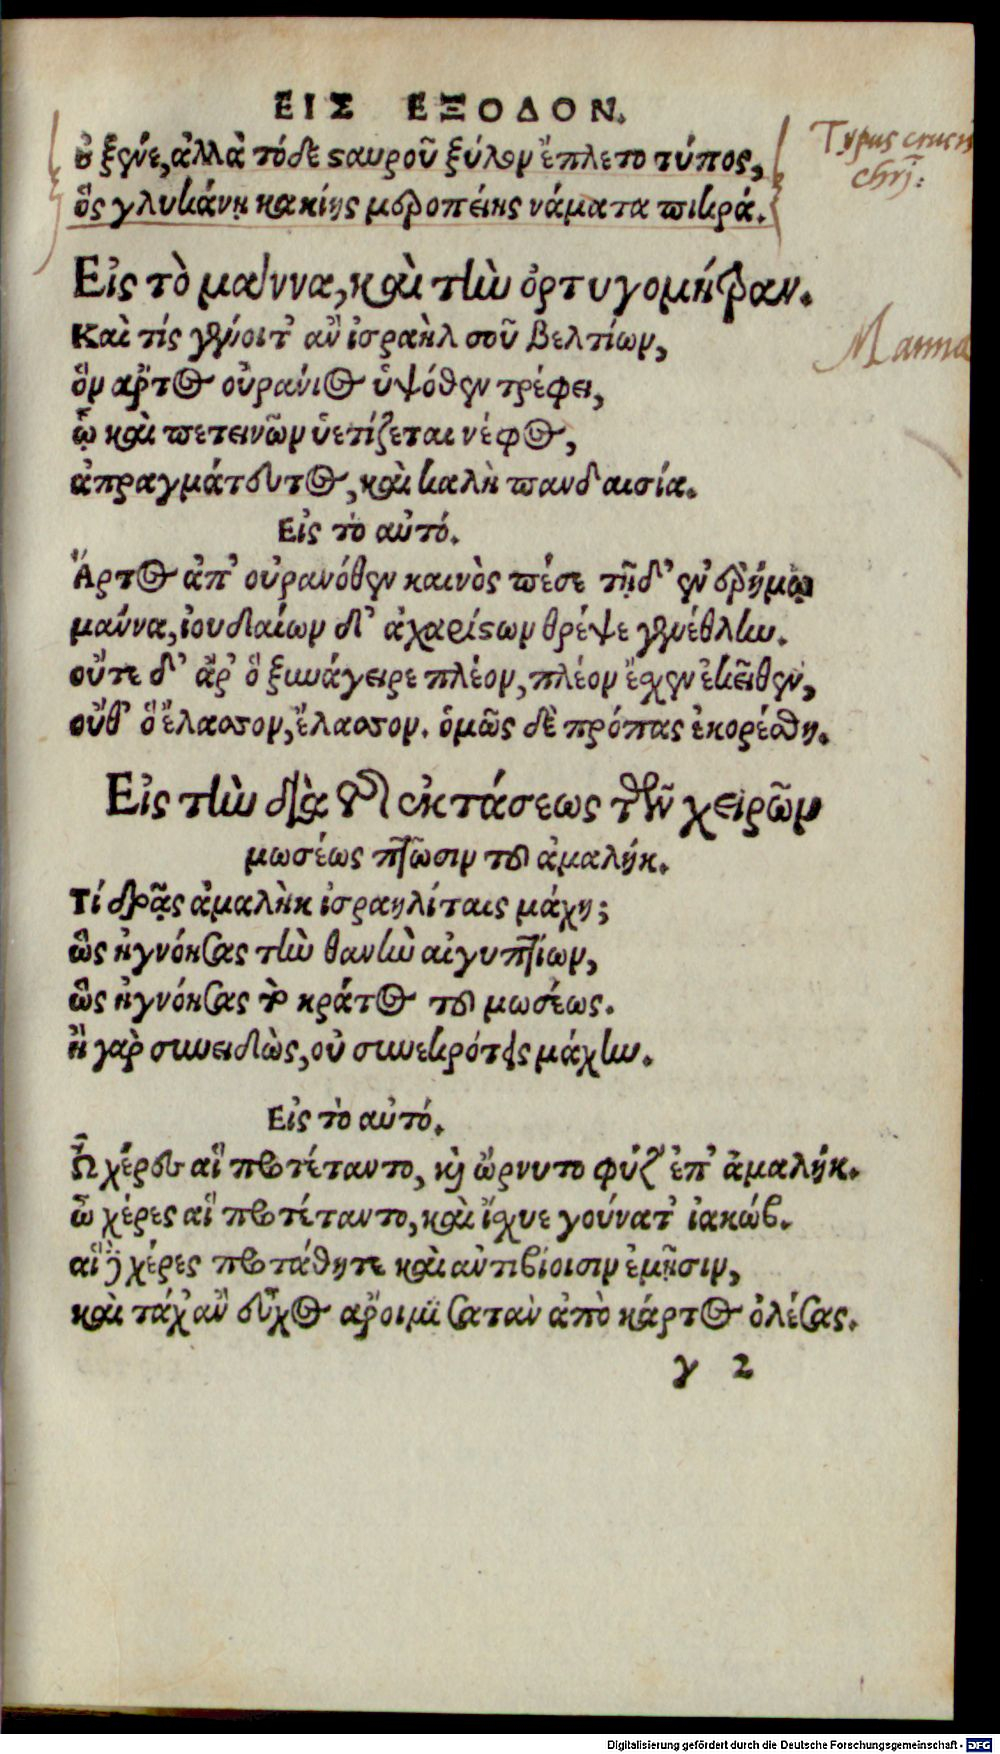 ΕΙΣ ΕΞΟΔΟΝ.
ὦ ξεῖνε, ἀλλὰ τόδε σαυροῦ ξύλον ἔπλετο τύπος,
ὃς γλυκάνῃ κακίης μεροπείης νάματα πικρά.
Typus crucis
chri:
Εἰς τὸ μάννα, καὶ τὴν ὀρτυγομήτραν.
Manna
Καὶ τίς γένοιτ' ἂν ἰσραὴλ σοῦ βελτίων,
ὃν ἄρτος οὐράνιος ὑψόθεν τρέφει,
ᾧ καὶ πετεινῶν ὑετίζεται νέφος,
ἀπραγμάτευτος, καὶ καλὴ πανδαισία.
Εἰς τὸ αὐτό.
Ἄρτος ἀπ' οὐρανόθεν καινὸς πέσε τῇδ' ἐν ἐρήμῳ
μάννα, ἰουδαίων δ' ἀχαρίστων θρέψε γενέθλην.
οὔτε δ' ἄρ' ὃ ξυνάγειρε πλέον, πλέον ἔσχεν ἐκεῖθεν,
οὔθ' ὃ ἔλασσον, ἔλασσον. ὁμῶς δὲ πρόπας ἐκορέσθη.
Εἰς τὴν διὰ τῆς ἐκτάσεως τῶν χειρῶν
μωσέως πτῶσιν τοῦ ἀμαλήκ.
Τί δρᾷς ἀμαλὴκ ἰσραηλίταις μάχη;
ὡς ἠγνόησας τὴν θανὴν αἰγυπτίων,
ὡς ἠγνόησας τὸ κράτος τοῦ μωσέως.
ἦ γὰρ συνειδὼς, οὐ συνεκρότεις μάχην.
Εἰς τὸ αὐτό.
Ὦ χέρες αἳ προτέταντο, καὶ ὤρνυτο φύζ' ἐπ' ἀμαλήκ.
ὦ χέρες αἳ προτέταντο, καὶ ἴσχυε γούνατ' ἰακώβ.
αἳ χέρες προτάθητε καὶ ἀντιβίοισιν ἐμῇσιν,
καὶ τάχ' ἂν εὖχος ἀροίμην σατὰν ἀπὸ κάρτος ὀλέσας.
γ 2
Digitalisierung gefördert durch die Deutsche Forschungsgemeinschaft - DFG